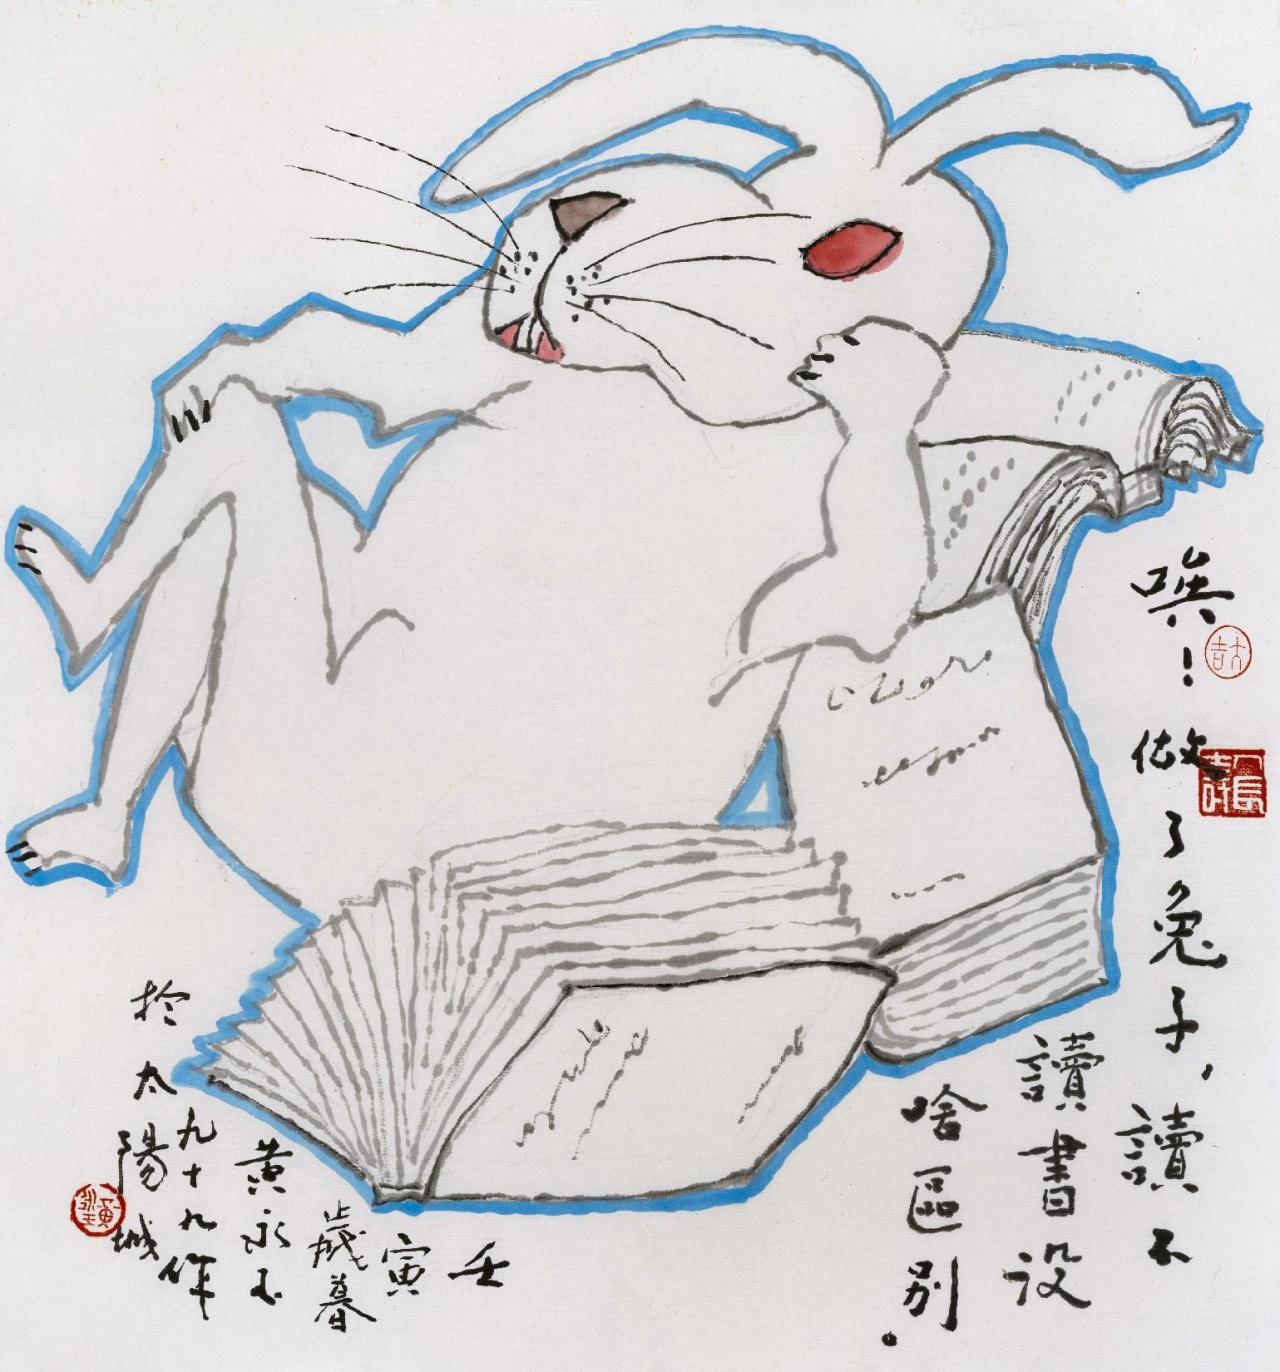 唉！做了兔子，讀不
讀書没
啥區別.
壬
寅
歲暮
黄永玉
九十九作
扵太陽城
大吉